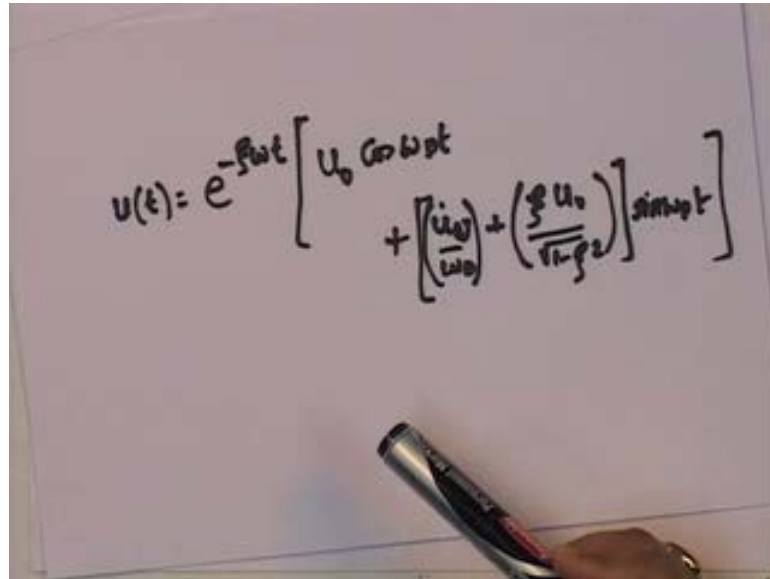 u(t) = e^{-ξωt} [ u_0 cos ω_D t
+ [ (u̇_0 / ω_D) + (ξ u_0 / √(1-ξ²)) ] sin ω_D t ]